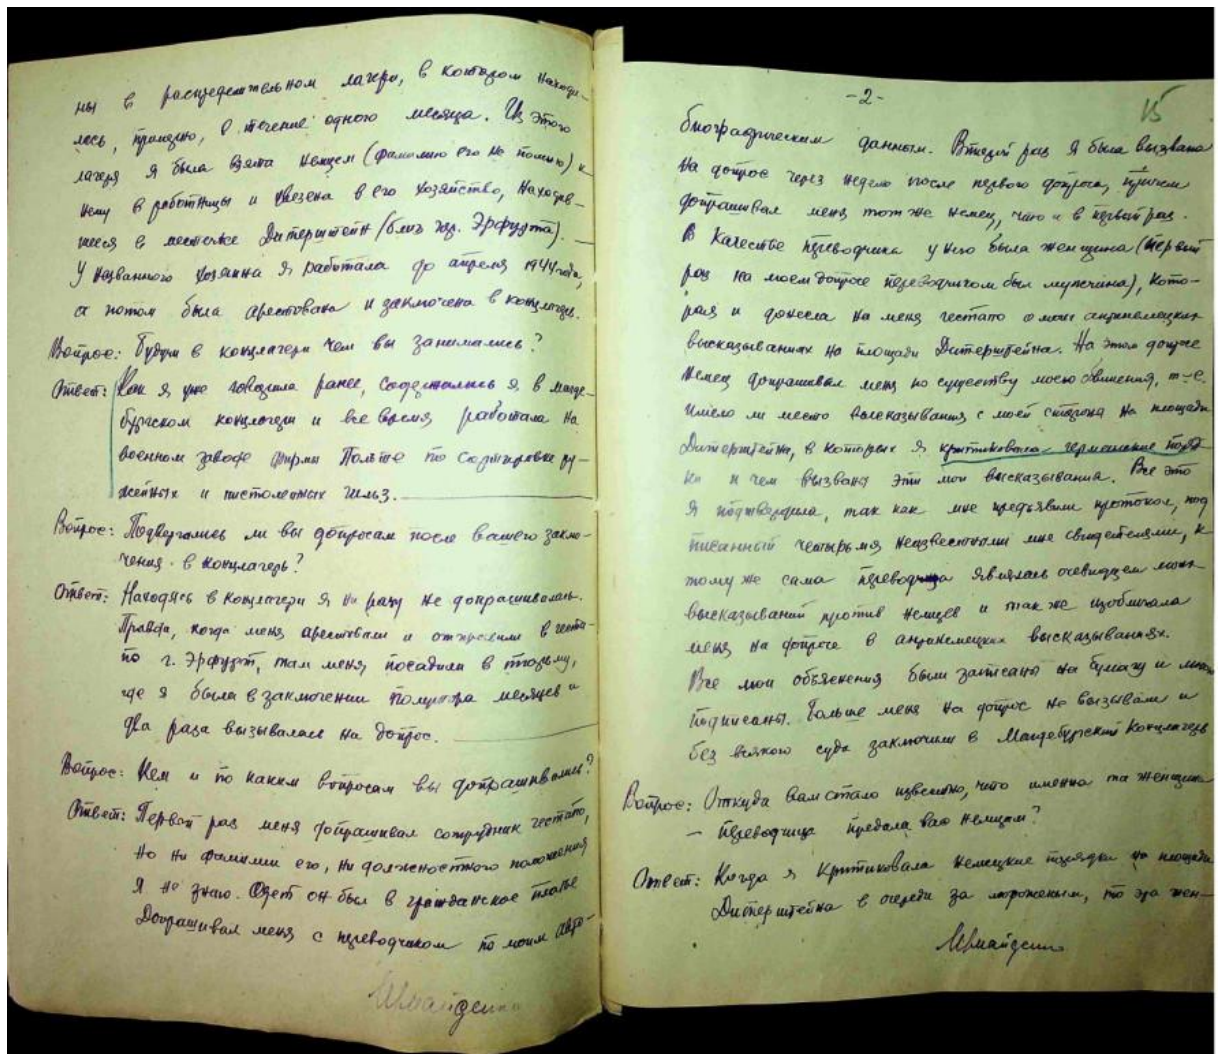 ны в распределительном лагере, в котором находи-
лась, примерно, в течение одного месяца. Из этого
лагеря я была взята немцем (фамилию его не помню) к
нему в работницы и увезена в его хозяйство, находяв-
шееся в местечке Дитерштейн (близ гор. Эрфурта).
У названного хозяина я работала до апреля 1944 года,
а потом была арестована и заключена в концлагерь.
Вопрос: Будучи в концлагере чем вы занимались?
Ответ: Как я уже говорила ранее, содержалась я в Магде-
бургском концлагере и все время работала на
военном заводе фирмы Польте по сортировке ру-
жейных и пистолетных гильз.
Вопрос: Подвергались ли вы допросам после вашего заклю-
чения в концлагерь?
Ответ: Находясь в концлагере я ни разу не допрашивалась.
Правда, когда меня арестовали и отправили в геста-
по г. Эрфурт, там меня посадили в тюрьму,
где я была в заключении полутора месяцев и
два раза вызывалась на допрос.
Вопрос: Кем и по каким вопросам вы допрашивались?
Ответ: Первый раз меня допрашивал сотрудник гестапо,
но ни фамилии его, ни должностного положения
я не знаю. Одет он был в гражданское платье
Допрашивал меня с переводчиком по моим авто-
-2-
15
биографическим данным. Второй раз я была вызвана
на допрос через неделю после первого допроса, причем
допрашивал меня тот же немец, что и в первый раз.
В качестве переводчика у него была женщина (первый
раз на моем допросе переводчиком был мужчина), кото-
рая и донесла на меня гестапо о моих антинемецких
высказываниях на площади Дитерштейна. На этом допросе
немец допрашивал меня по существу моего обвинения, т-е.
имело ли место высказывания с моей стороны на площади
Дитерштейна, в которых я критиковала германские поряд-
ки и чем вызваны эти мои высказывания. Все это
я подтвердила, так как мне предъявили протокол, под
писанный четырьмя неизвестными мне свидетелями, к
тому же сама переводчица являлась очевидцем моих
высказываний против немцев и так же изобличала
меня на допросе в антинемецких высказываниях.
Все мои объяснения были записаны на бумагу и мною
подписаны. Больше меня на допрос не вызывали и
без всякого суда заключили в Магдебургский концлагерь
Вопрос: Откуда вам стало известно, что именно та женщина
- переводчица предала вас немцам?
Ответ: Когда я критиковала немецкие порядки на площади
Дитерштейна в очереди за мороженым, то эта жен-